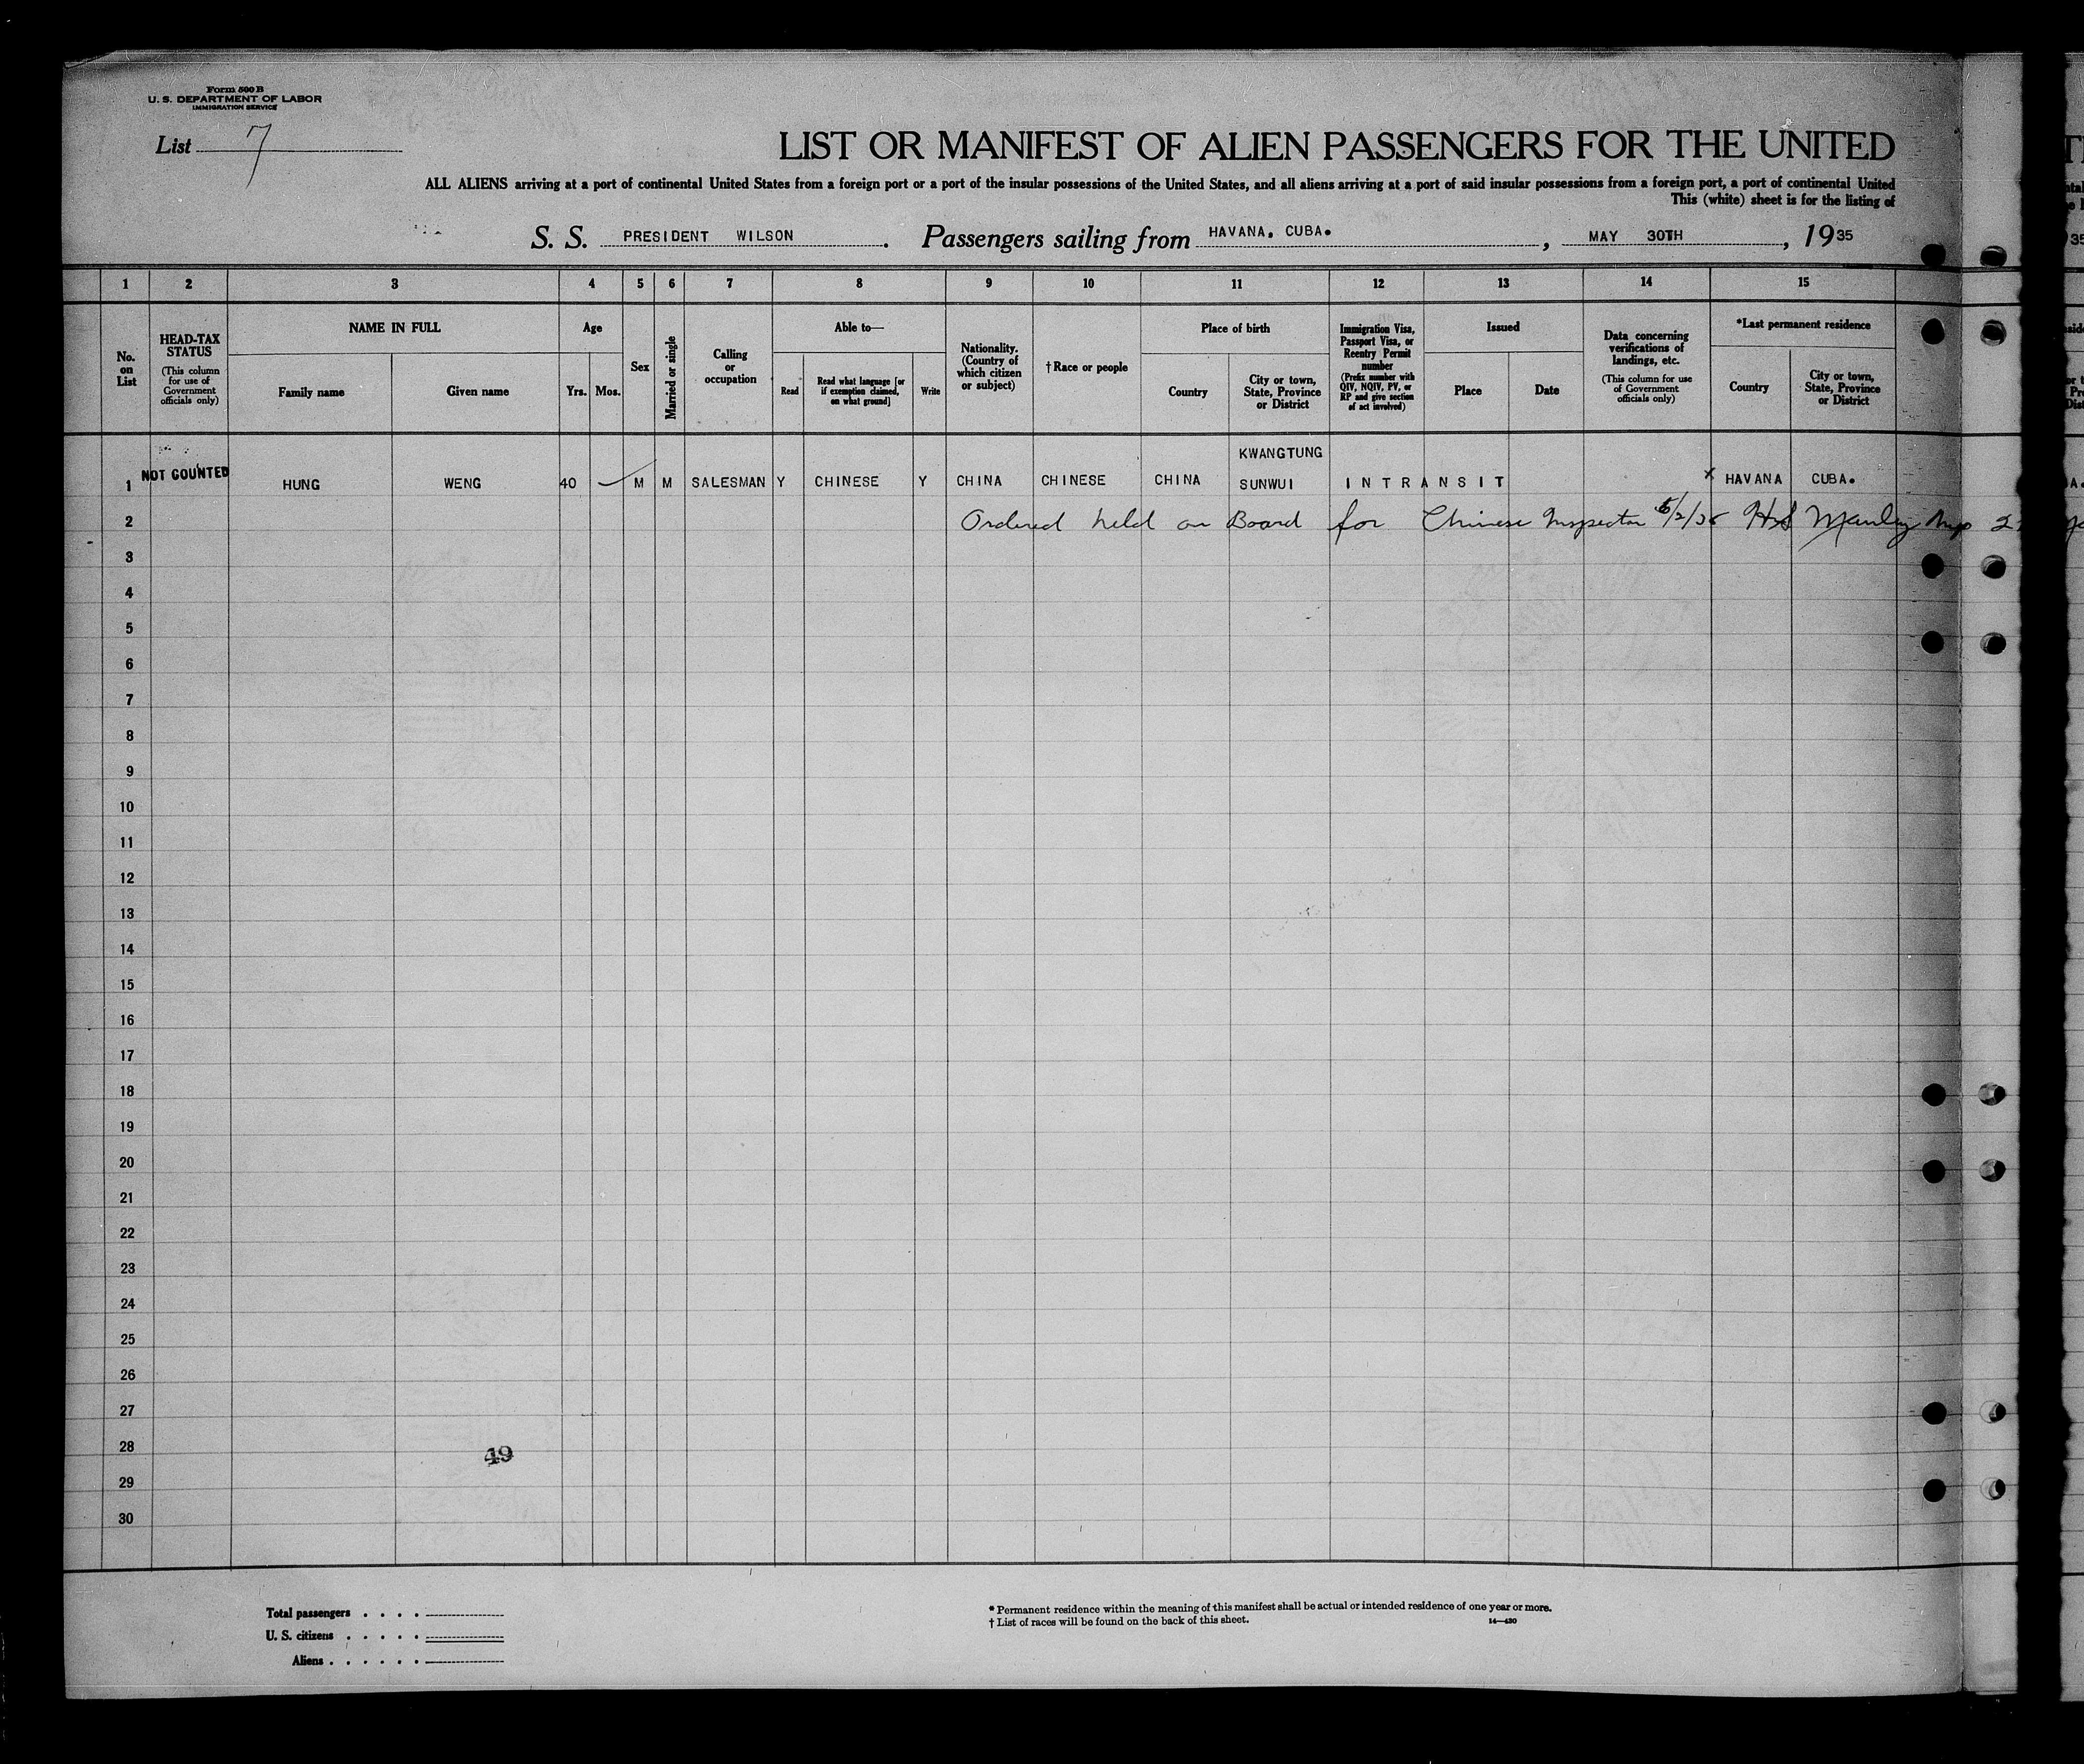 Form 500 B
U. S. DEPARTMENT OF LABOR
IMMIGRATION SERVICE
List 7
LIST OR MANIFEST OF ALIEN PASSENGERS FOR THE UNITED
ALL ALIENS arriving at a port of continental United States from a foreign port or a port of the insular possessions of the United States, and all aliens arriving at a port of said insular possessions from a foreign port, a port of continental United
This (white) sheet is for the listing of
S. S. PRESIDENT WILSON. Passengers sailing from HAVANA, CUBA., MAY 30TH, 1935
1 2 3 4 5 6 7 8 9 10 11 12 13 14 15
No. on List
HEAD-TAX STATUS (This column for use of Government officials only)
NAME IN FULL
Family name
Given name
Age
Yrs. Mos.
Sex
Married or single
Calling or occupation
Able to—
Read
Read what language [or if exemption claimed, on what ground]
Write
Nationality. (Country of which citizen or subject)
† Race or people
Place of birth
Country
City or town, State, Province or District
Immigration Visa, Passport Visa, or Reentry Permit number (Prefix number with QIV, NQIV, PV, or RP and give section of act involved)
Issued
Place
Date
Data concerning verifications of landings, etc. (This column for use of Government officials only)
*Last permanent residence
Country
City or town, State, Province or District
KWANGTUNG
1 NOT COUNTED HUNG WENG 40 M M SALESMAN Y CHINESE Y CHINA CHINESE CHINA SUNWUI INTRANSIT x HAVANA CUBA.
2 Ordered held on Board for Chinese Inspector 6/2/35 Manley
3
4
5
6
7
8
9
10
11
12
13
14
15
16
17
18
19
20
21
22
23
24
25
26
27
28
49
29
30
Total passengers . . . .
U. S. citizens . . . . .
Aliens . . . . . .
* Permanent residence within the meaning of this manifest shall be actual or intended residence of one year or more.
† List of races will be found on the back of this sheet. 14—430